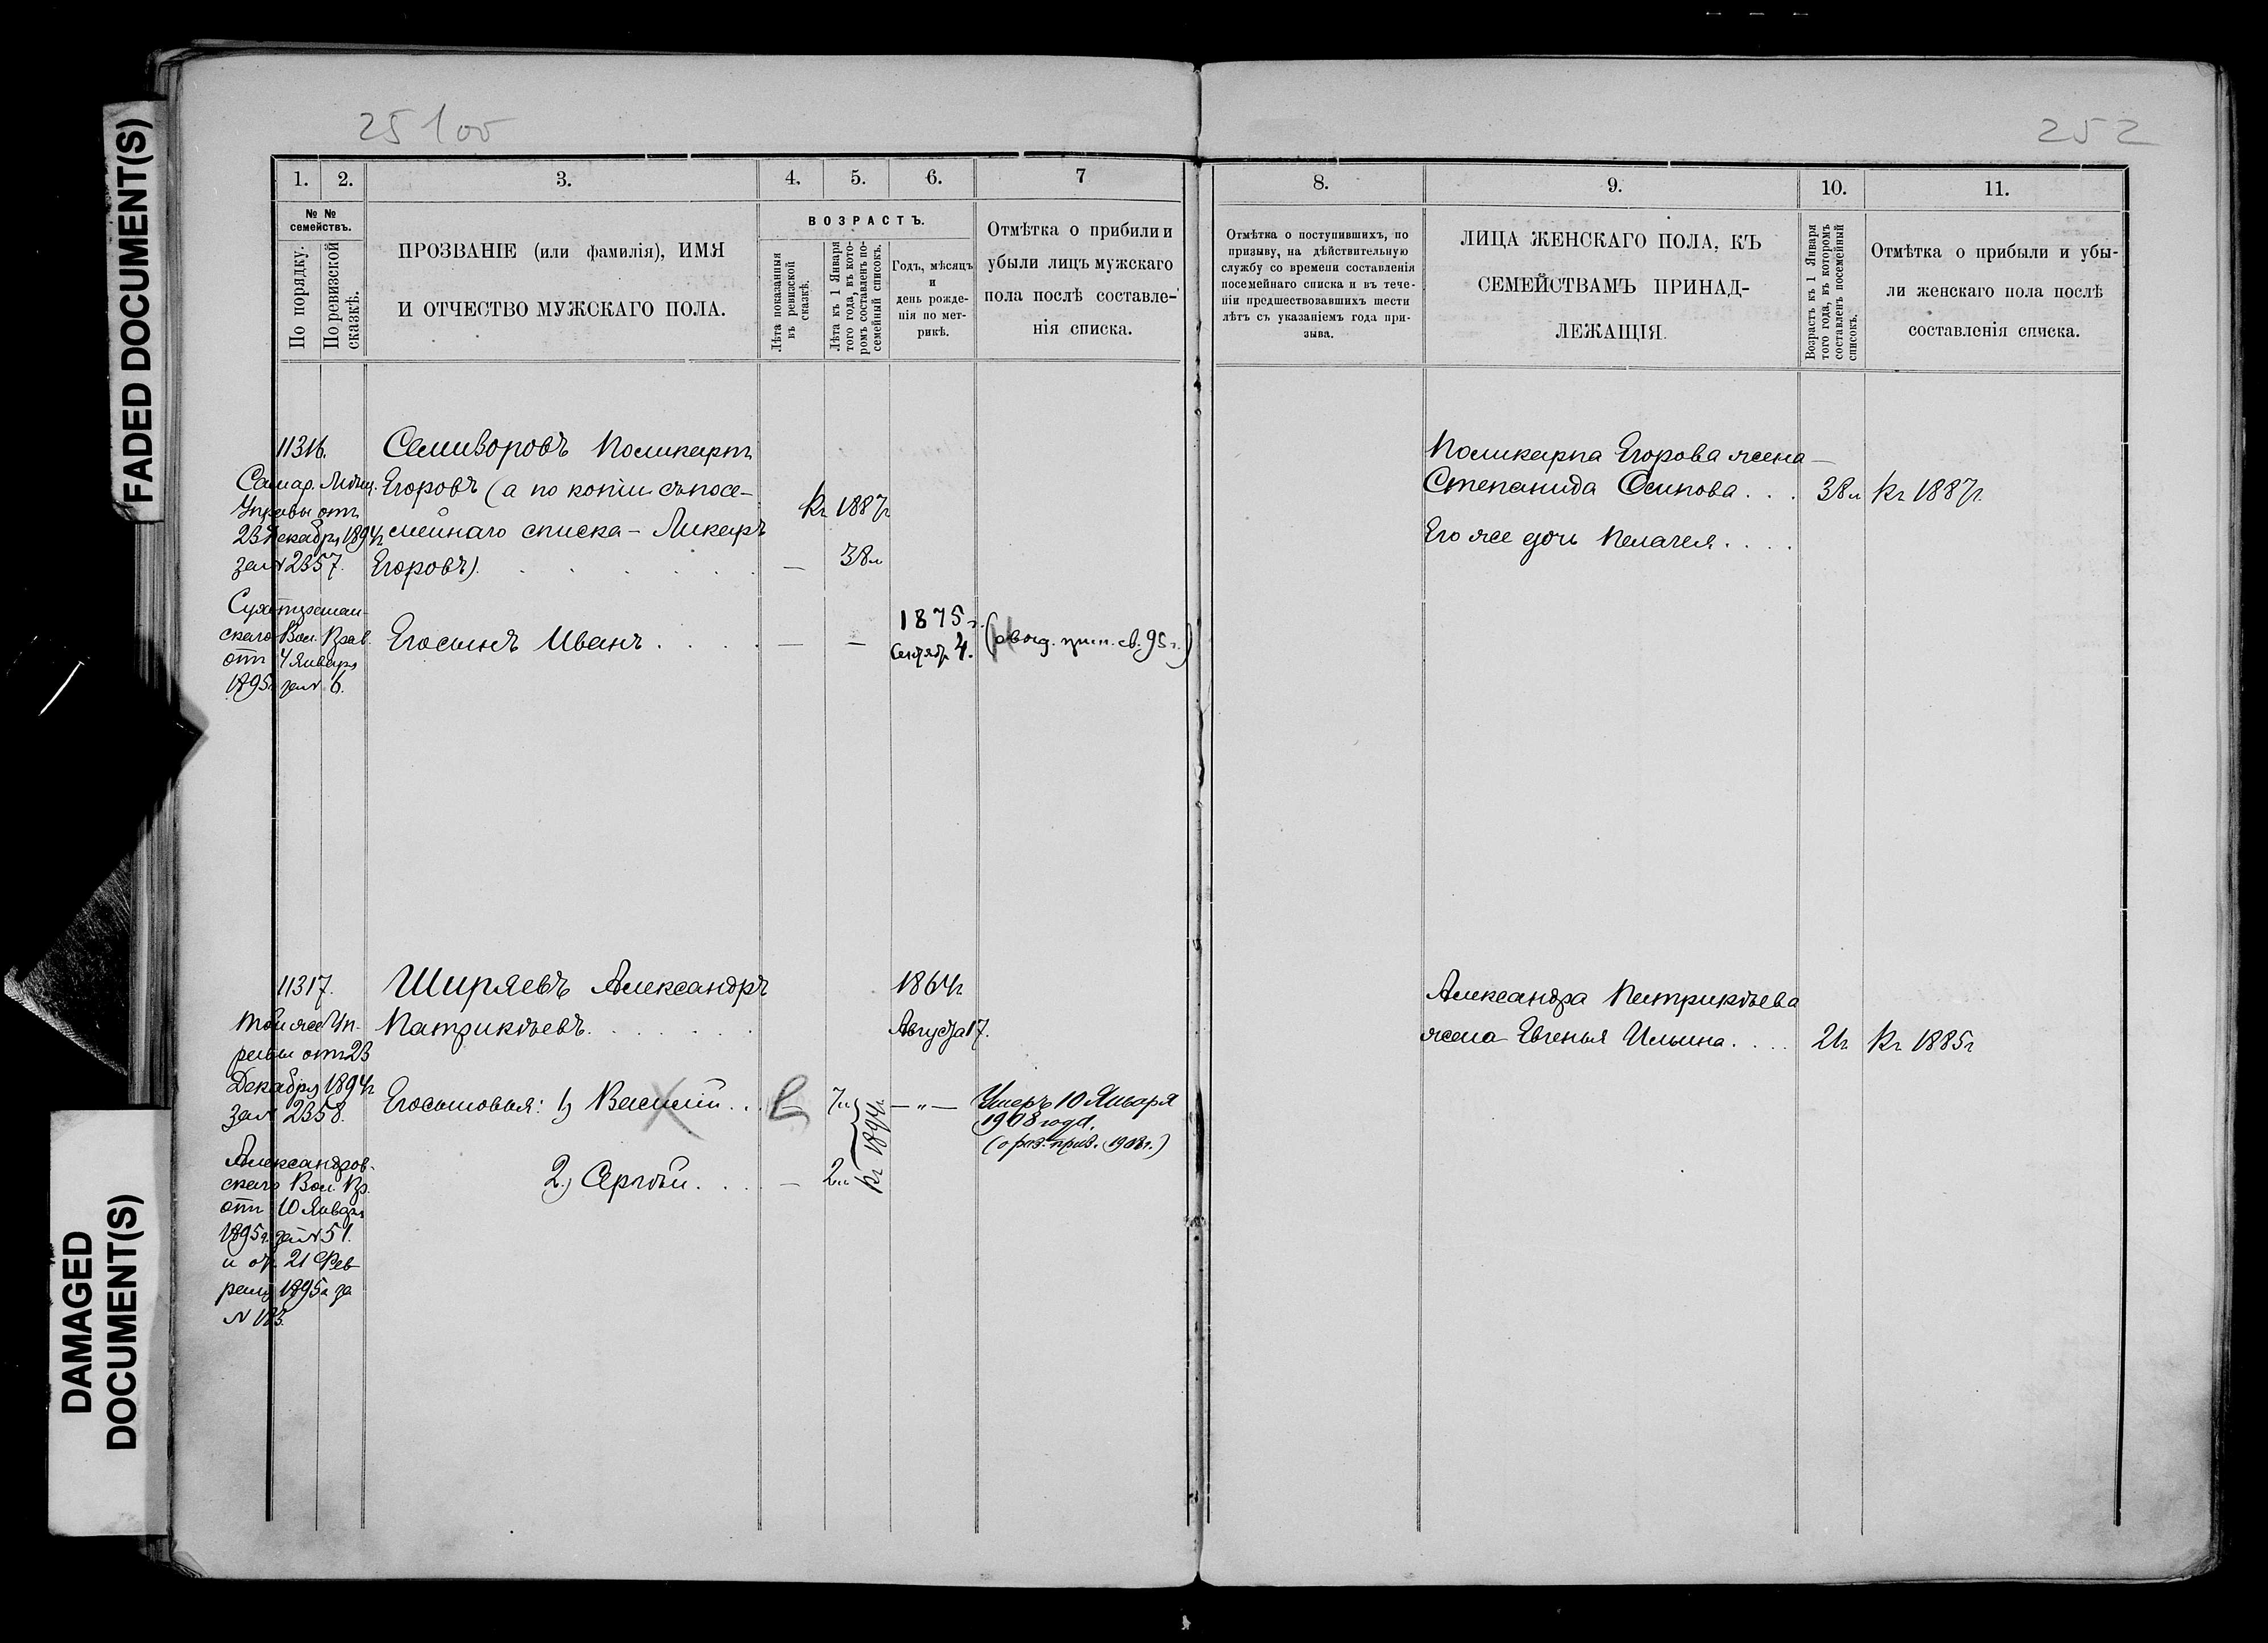 FADED DOCUMENT(S)
DAMAGED
DOCUMENT(S)
25 1 об
1.
2.
3.
4.
5.
6.
7
№ №
семействъ.
По порядку.
По ревизской
сказкѣ.
ПРОЗВАНІЕ (или фамилія), ИМЯ
И ОТЧЕСТВО МУЖСКАГО ПОЛА.
ВОЗРАСТЪ.
Лѣта показанныя
въ ревизской
сказкѣ.
Лѣта къ 1 Января
того года, въ кото-
ромъ составленъ по-
семейный списокъ.
Годъ, мѣсяцъ
и
день рожде-
нія по мет-
рикѣ.
Отмѣтка о прибили и
убыли лицъ мужскаго
пола послѣ составле-
нія списка.
11316.
Самар. Мѣщ.
Управы отъ
23 Декабря 1894г
за № 2357.
отъ 4 Января
1895г за № 6.
Семиворовъ Поликарпъ
Егоровъ (а по копіи съ посе-
мейнаго списка - Ликаръ
Егоровъ).
Кг 1887г
— 38л
Его сынъ Иванъ . . . . — —
1875г.
Сентябр 4.
11317.
Той же Уп-
равы отъ 23
Декабря 1894г
за № 2358.
Александров-
скаго Вол. Пр.
отъ 10 Января
1895г. за № 51.
и отъ 21 Фев-
раля 1895г за
Ширяевъ Александръ
Патрикѣевъ. . . . . .
1864г
Августа 17.
Его сыновья: 1) Василій . . .
7л
— „ —
Умеръ 10 Января
1908 года.
2) Сергѣй. . . . —
2л
Кг 1894г.
252
8.
9.
10.
11.
Отмѣтка о поступившихъ, по
призыву, на дѣйствительную
службу со времени составленія
посемейнаго списка и въ тече-
ніи предшествовавшихъ шести
лѣтъ съ указаніемъ года при-
зыва.
ЛИЦА ЖЕНСКАГО ПОЛА, КЪ
СЕМЕЙСТВАМЪ ПРИНАД-
ЛЕЖАЩІЯ
Возрастъ къ 1 Января
того года, въ которомъ
составленъ посемейный
списокъ.
Отмѣтка о прибыли и убы-
ли женскаго пола послѣ
составленія списка.
Поликарпа Егорова жена —
Степанида Осипова . . . 38л Кг 1887г
Его же дочь Пелагея . . . .
Александра Патрикѣева
жена Евгенья Ильина . . . . 21г Кг 1885г